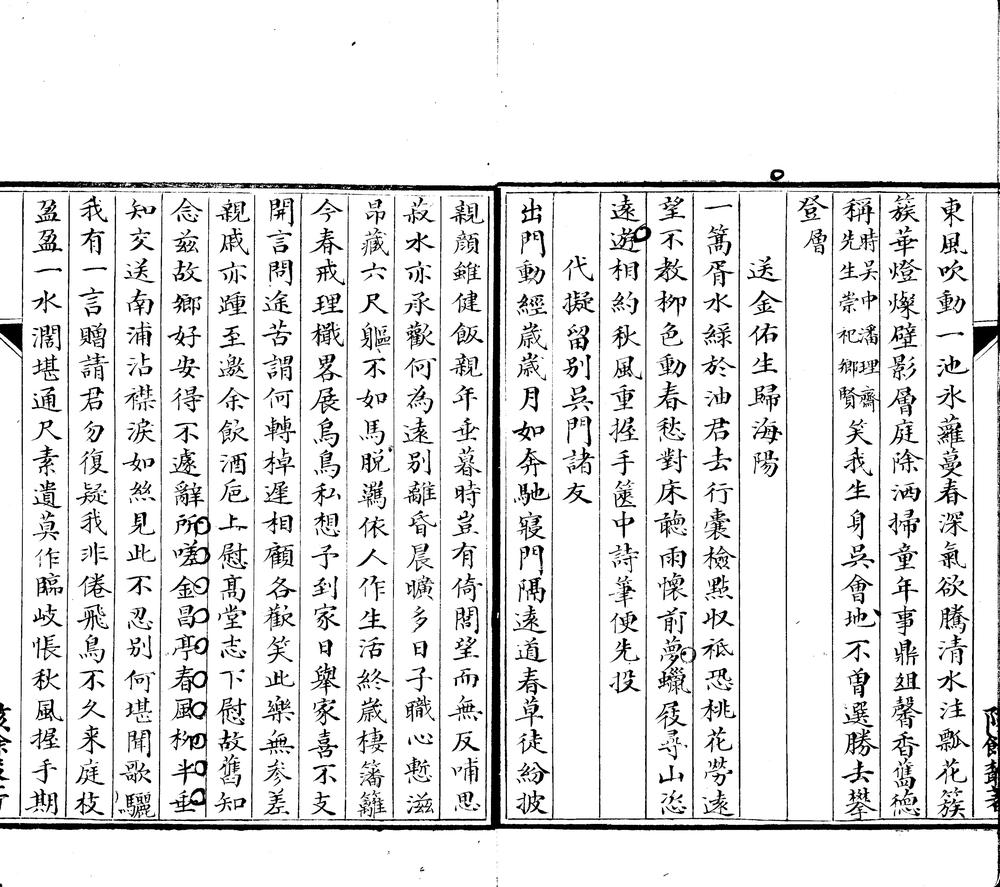 東風吹動一池氷蘿蔓春深氣欲騰清水注瓢花簇
簇華燈燦壁影層庭除洒掃童年事鼎俎馨香舊德
稱時吳中潘理齋先生崇祀鄉賢笑我生身吳會地不曾選勝去攀
登層
送金佑生歸海陽
一篙胥水綠於油君去行囊檢點收祗恐桃花勞遠
望不教柳色動春愁對床聽雨懷前夢蠟屐尋山恣
遠遊相約秋風重握手篋中詩筆便先投
代擬留別吳門諸友
出門動經歲歲月如奔馳寢門隔遠道春草徒紛披
親顏雖健飯親年垂暮時豈有倚閭望而無反哺思
菽水亦承歡何為遠別離昏晨曠多日子職心慙滋
昂藏六尺軀不如馬脫羈依人作生活終歲棲籓籬
今春戒理檝畧展烏鳥私想予到家日舉家喜不支
開言問途苦謂何轉棹遲相顧各歡笑此樂無参差
親戚亦踵至邀余飲酒巵上慰髙堂志下慰故舊知
念兹故鄉好安得不遽辭所嗟金昌亭春風柳半垂
知交送南浦沾襟淚如絲見此不忍別何堪聞歌驪
我有一言贈請君勿復疑我非倦飛鳥不久来庭枝
盈盈一水濶堪通尺素遺莫作臨岐悵秋風握手期